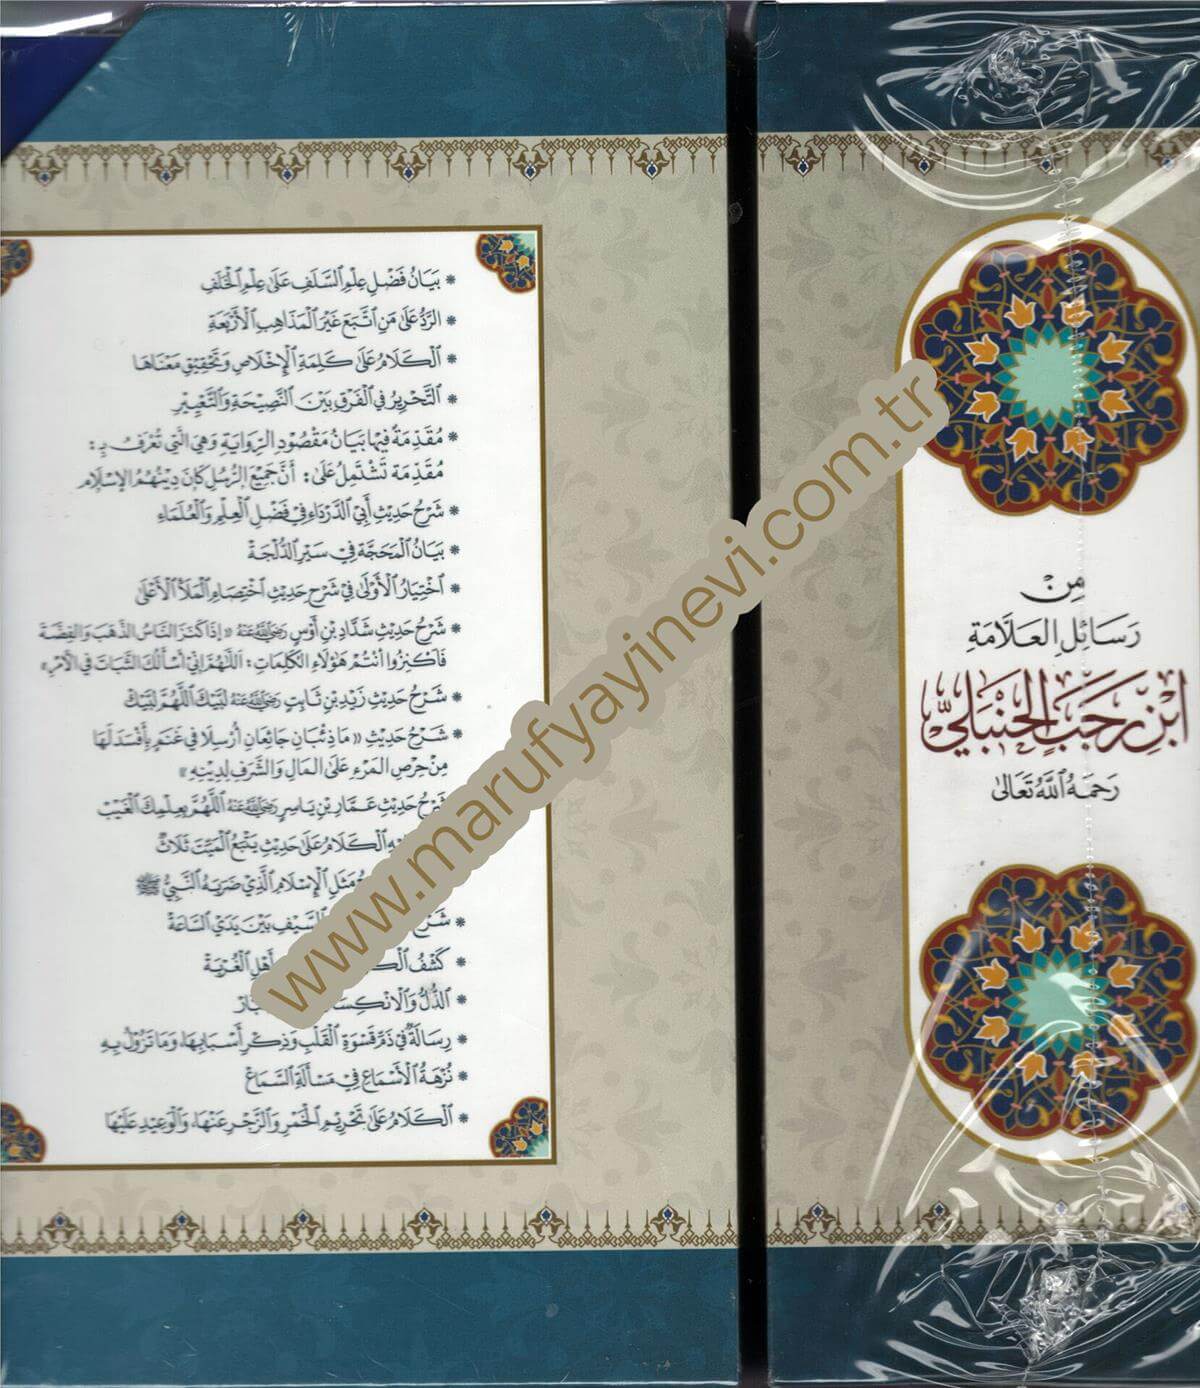 * بَيَانُ فَضْلِ عِلْمِ السَّلَفِ عَلَىٰ عِلْمِ الْخَلَفِ
* الرَّدُّ عَلَىٰ مَنِ اتَّبَعَ غَيْرَ الْمَذَاهِبِ الْأَرْبَعَةِ
* الْكَلَامُ عَلَىٰ كَلِمَةِ الْإِخْلَاصِ وَتَحْقِيقِ مَعْنَاهَا
* التَّحْرِيرُ فِي الْفَرْقِ بَيْنَ النَّصِيحَةِ وَالتَّعْيِيرِ
* مُقَدِّمَةٌ فِيهَا بَيَانُ مَقْصُودِ الرِّوَايَةِ وَهِيَ الَّتِي تُعْرَفُ بِـ :
مُقَدِّمَة تَشْتَمِلُ عَلَىٰ : أَنَّ جَمِيعَ الرُّسُلِ كَانَ دِينُهُمُ الْإِسْلَام
* شَرْحُ حَدِيثِ أَبِي الدَّرْدَاءِ فِي فَضْلِ الْعِلْمِ وَالْعُلَمَاءِ
* بَيَانُ الْمَحَجَّةِ فِي سَيْرِ الدُّلْجَةِ
* اخْتِيَارُ الْأَوْلَىٰ فِي شَرْحِ حَدِيثِ اخْتِصَامِ الْمَلَأِ الْأَعْلَىٰ
* شَرْحُ حَدِيثِ شَدَّادِ بْنِ أَوْسٍ رَضِيَ اللَّهُ عَنْهُ «إِذَا كَنَزَ النَّاسُ الذَّهَبَ وَالْفِضَّةَ
فَاكْنِزُوا أَنْتُمْ هَؤُلَاءِ الْكَلِمَاتِ : اللَّهُمَّ إِنِّي أَسْأَلُكَ الثَّبَاتَ فِي الْأَمْرِ»
* شَرْحُ حَدِيثِ زَيْدِ بْنِ ثَابِتٍ رَضِيَ اللَّهُ عَنْهُ لَبَّيْكَ اللَّهُمَّ لَبَّيْكَ
* شَرْحُ حَدِيثِ «مَا ذِئْبَانِ جَائِعَانِ أُرْسِلَا فِي غَنَمٍ بِأَفْسَدَ لَهَا
مِنْ حِرْصِ الْمَرْءِ عَلَى الْمَالِ وَالشَّرَفِ لِدِينِهِ»
شَرْحُ حَدِيثِ عَمَّارِ بْنِ يَاسِرٍ رَضِيَ اللَّهُ عَنْهُ اللَّهُمَّ بِعِلْمِكَ الْغَيْبَ
الْكَلَامُ عَلَىٰ حَدِيثِ يَتْبَعُ الْمَيِّتَ ثَلَاثٌ
مَثَلِ الْإِسْلَامِ الَّذِي ضَرَبَهُ النَّبِيُّ ﷺ
* شَرْحُ السَّيْفِ بَيْنَ يَدَيِ السَّاعَةِ
* كَشْفُ أَهْلِ الْغُرْبَةِ
* الذُّلُّ وَالْانْكِسَارُ
* رِسَالَةٌ فِي ذَمِّ قَسْوَةِ الْقَلْبِ وَذِكْرِ أَسْبَابِهَا، وَمَا تَزُولُ بِهِ
* نُزْهَةُ الْأَسْمَاعِ فِي مَسْأَلَةِ السَّمَاعِ
* الْكَلَامُ عَلَىٰ تَحْرِيمِ الْخَمْرِ وَالزَّجْرِ عَنْهَا، وَالْوَعِيدِ عَلَيْهَا
مِنْ
رَسَائِلِ الْعَلَّامَةِ
ابْنِ رَجَبٍ الْحَنْبَلِيِّ
رَحِمَهُ اللَّهُ تَعَالَىٰ
www.marufyayinevi.com.tr